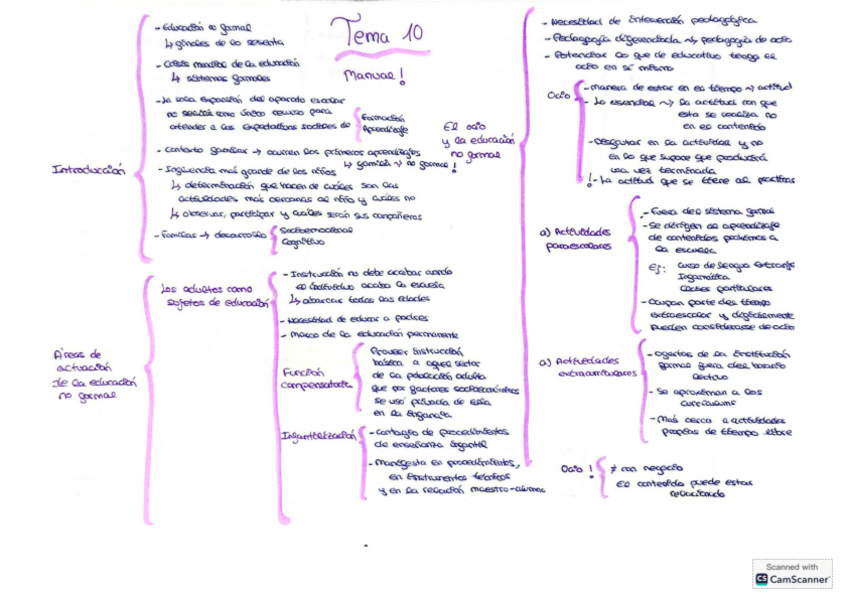 Tema 10
Manual!
Introducción
- Educación no formal
↳ finales de los sesenta
- Crisis mundial de la educación
↳ sistemas formales
- La sola expansión del aparato escolar
no serviría como único recurso para
atender a las expectativas sociales de
Formación
Aprendizaje
- Contexto familiar → ocurren los primeros aprendizajes
↳ familia ~> no formal!
- Influencia más grande de los niños
↳ determinación que hacen de cuáles son las
actividades más cercanas al niño y cuáles no
↳ observar, participar y cuáles serán sus compañeros
- Familias → desarrollo
Socioemocional
Cognitivo
Áreas de
actuación
de la educación
no formal
Los adultos como
sujetos de educación
- Instrucción no debe acabar cuando
el individuo acaba la escuela
↳ abarcar todas las edades
- Necesidad de educar a padres
- Marco de la educación permanente
Función
compensatoria
Proveer instrucción
básica a aquel sector
de la población adulta
que por factores socioeconómicos
se vio privada de ella
en la infancia
Infantilización
- Contagio de procedimientos
de enseñanza infantil
- Manifiesta en procedimientos,
en instrumentos teóricos
y en la relación maestro-alumno
El ocio
y la educación
no formal
- Necesidad de intervención pedagógica
- Pedagogía diferenciada ~> pedagogía de ocio
- Potenciar lo que de educativo tenga el
ocio en sí mismo
Ocio
- manera de estar en el tiempo ~> actitud
- Lo esencial ~> la actitud con que
esta se realiza no
en el contenido
- Disfrutar en la actividad y no
en lo que supone que producirá
una vez terminada
! - La actitud que se tiene al practicar
a) Actividades
paraescolares
- Fuera del sistema formal
- Se dirigen al aprendizaje
de contenidos próximos a
la escuela
Ej: Curso de lengua extranje
Informática
Clases particulares
- Ocupan parte del tiempo
extraescolar y difícilmente
pueden considerarse de ocio
a) Actividades
extracurriculares
- Ofertas de la institución
formal fuera del horario
lectivo
- Se aproximan a los
currículums
- Más cerca a actividades
propias de tiempo libre
Ocio!
≠ con negocio
El contenido puede estar
relacionado
Scanned with
CS CamScanner